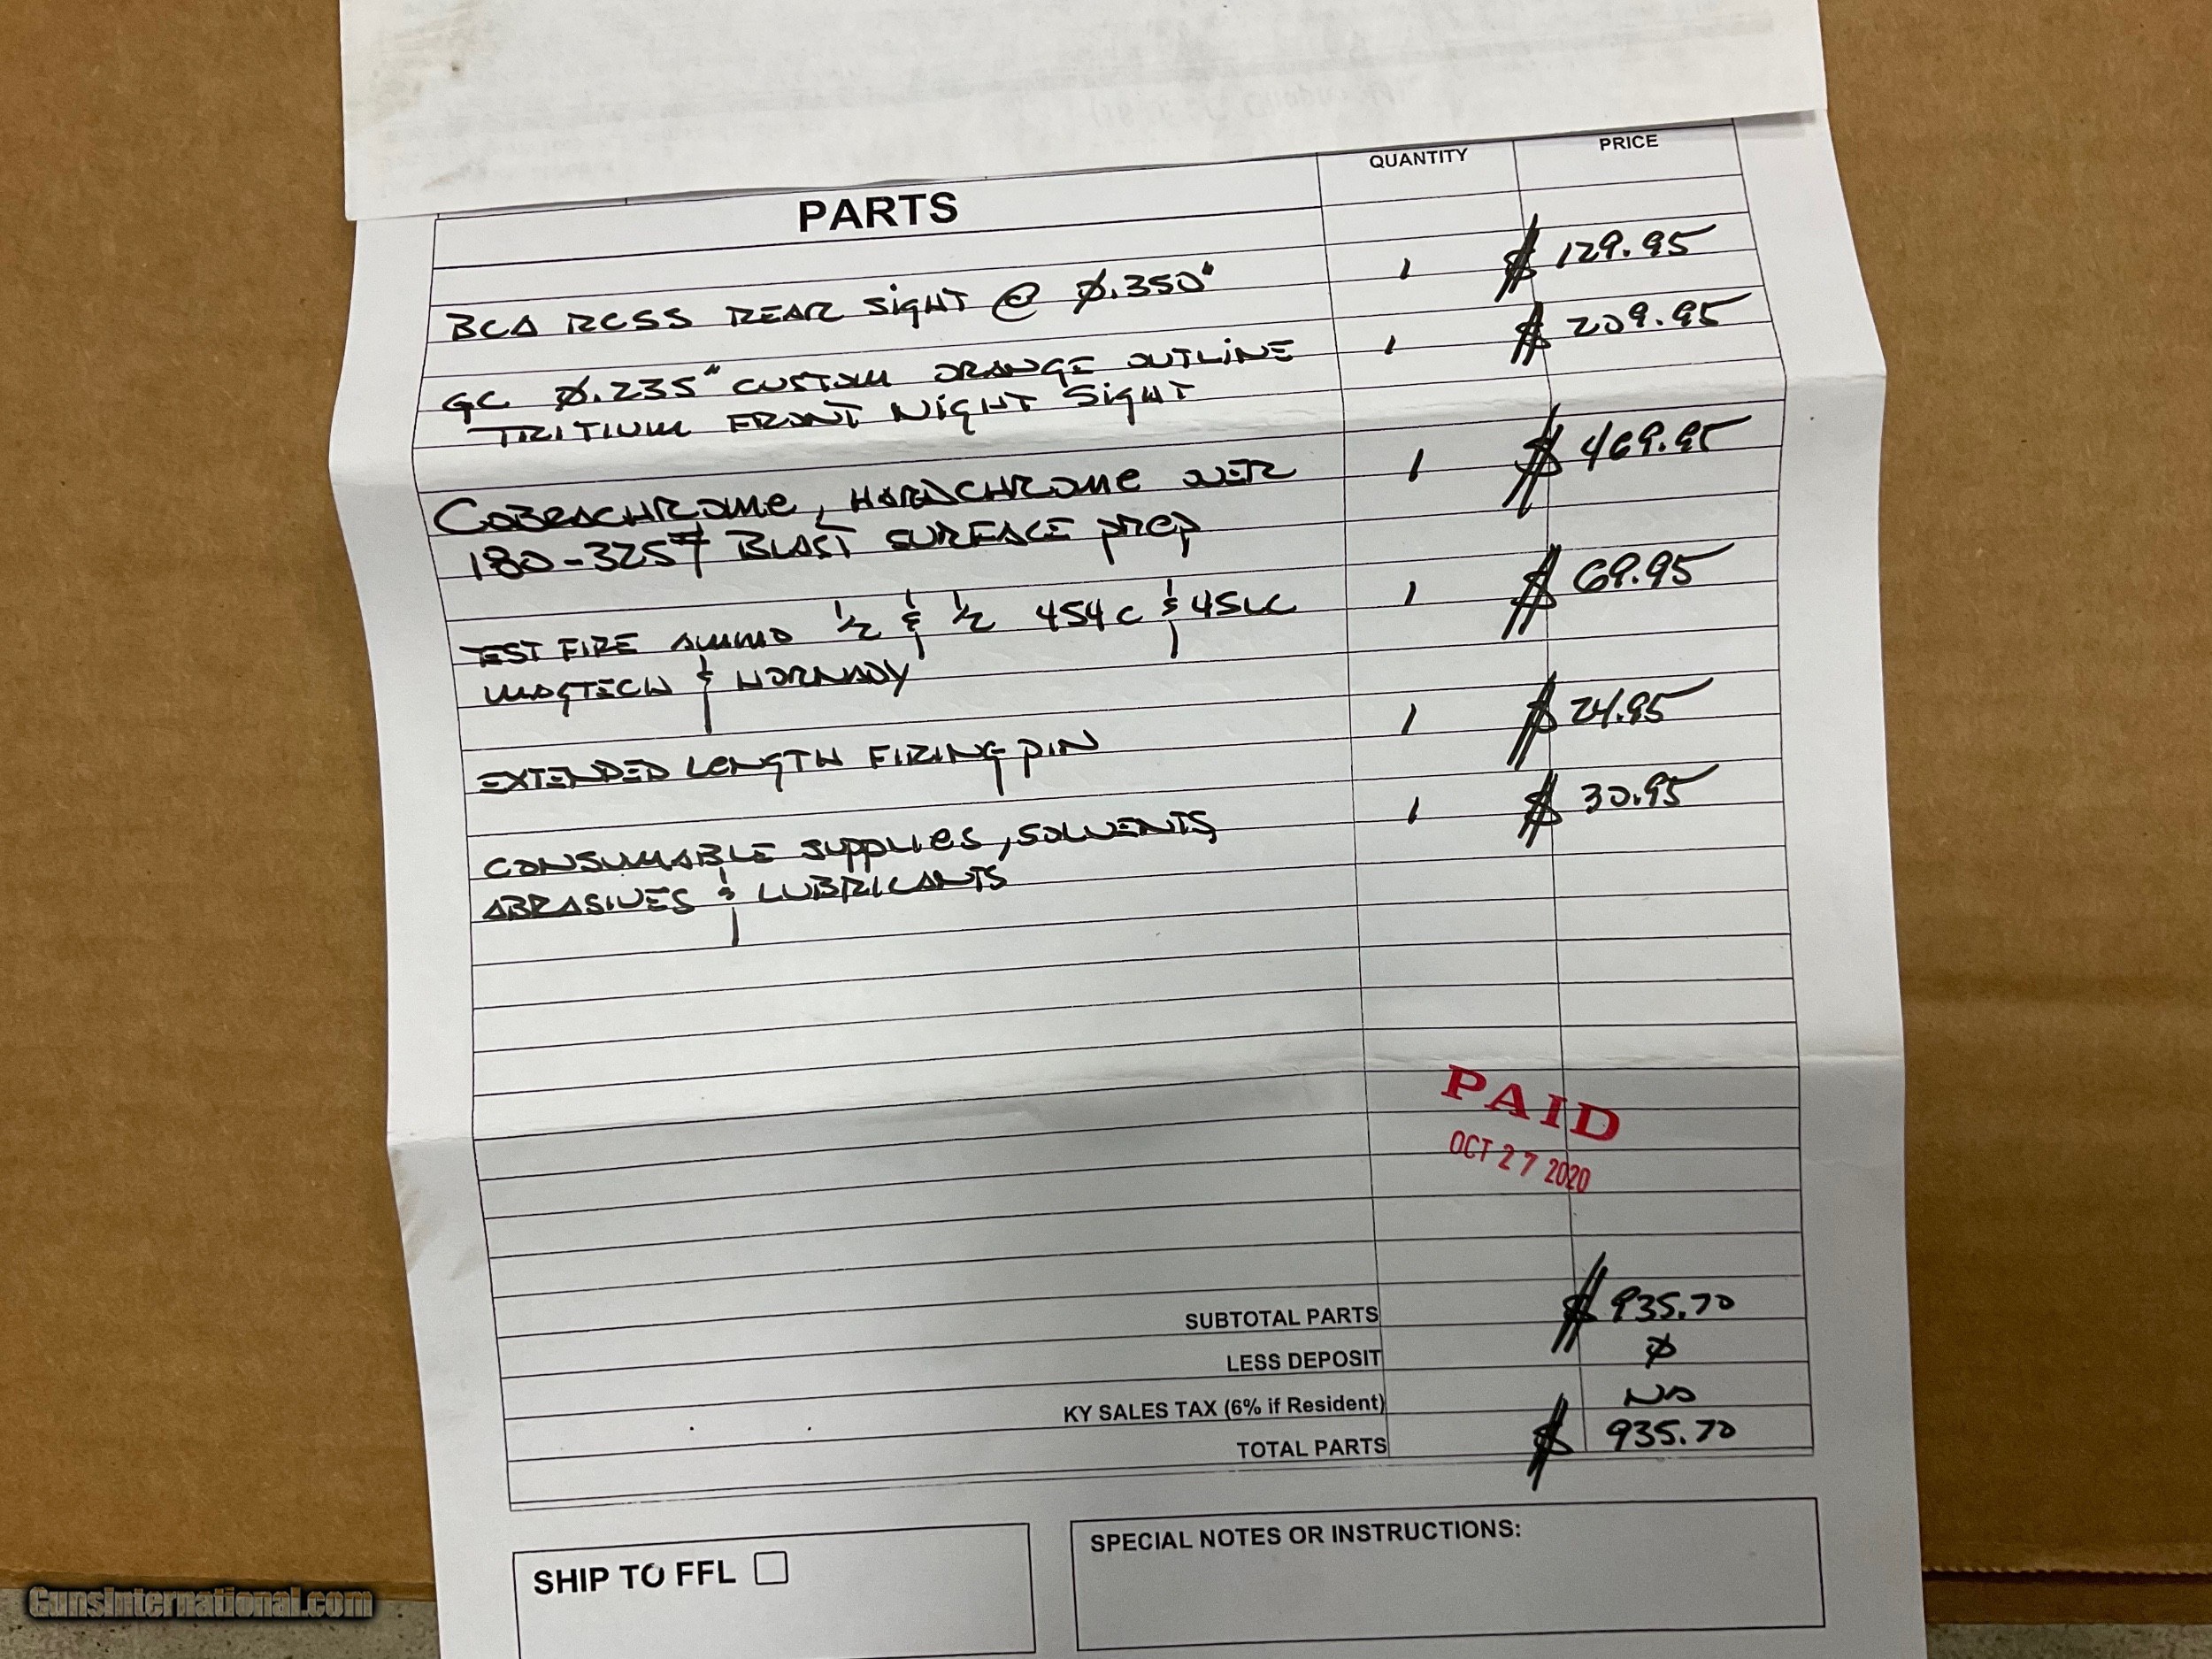 QUANTITY PRICE
PARTS
BCA RCSS REAR SIGHT @ Ø.350" 1 $ 129.95
GC Ø.235" CUSTOM ORANGE OUTLINE 1 $ 209.95
TRITIUM FRONT NIGHT SIGHT
COBRACHROME, HARDCHROME OVER 1 $ 469.95
180-325# BLAST SURFACE PREP
TEST FIRE AMMO 1/2 & 1/2 454C & 45LC 1 $ 69.95
MAGTECH & HORNADY
EXTENDED LENGTH FIRING PIN 1 $ 24.95
CONSUMABLE SUPPLIES, SOLVENTS, 1 $ 30.95
ABRASIVES & LUBRICANTS
PAID
OCT 27 2020
SUBTOTAL PARTS $ 935.70
LESS DEPOSIT Ø
KY SALES TAX (6% if Resident) NO
TOTAL PARTS $ 935.70
SHIP TO FFL
SPECIAL NOTES OR INSTRUCTIONS:
GunsInternational.com